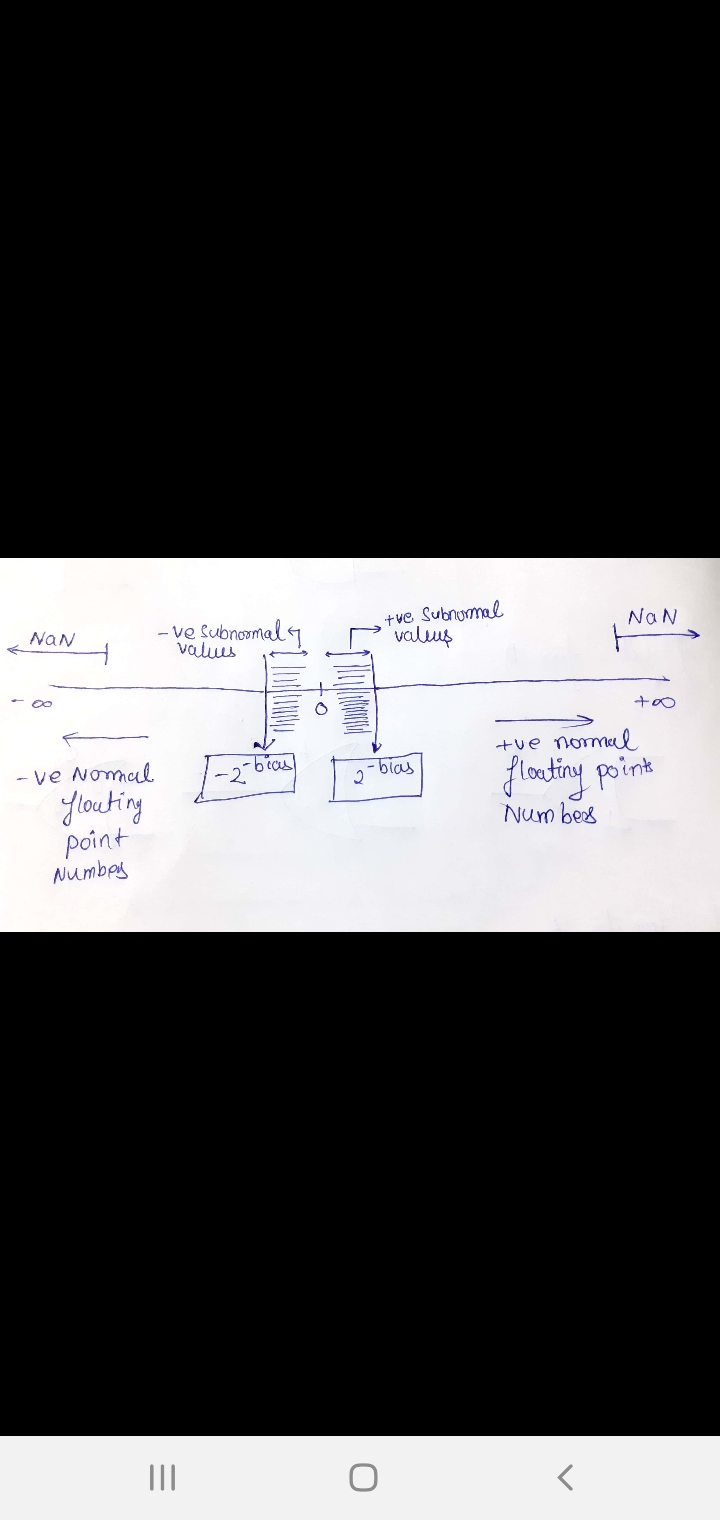 NaN
-ve Subnormal
values
+ve Subnormal
values
NaN
- ∞
0
+∞
-ve Normal
floating
point
Numbers
-2^-bias
2^-bias
+ve normal
floating points
Numbers